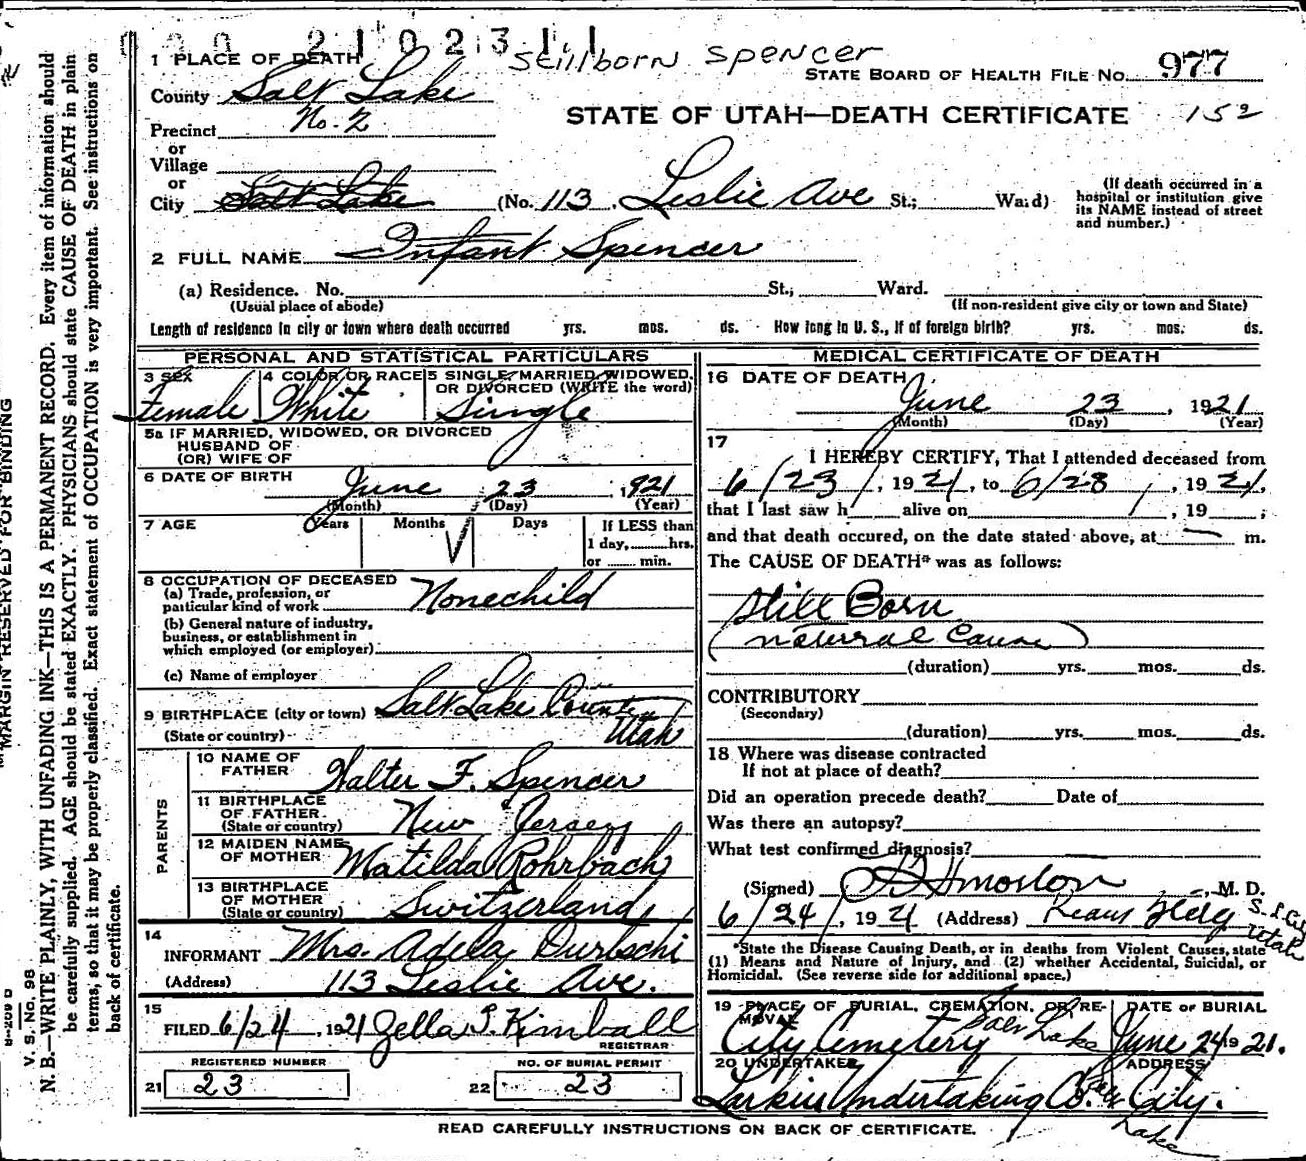 21 02311
Stillborn Spencer
1 PLACE OF DEATH
STATE BOARD OF HEALTH FILE NO. 977
County Salt Lake
STATE OF UTAH—DEATH CERTIFICATE 152
Precinct No. 2
or
Village
or
City Salt Lake (No. 113 Leslie Ave St.; Ward)
(If death occurred in a
hospital or institution give
its NAME instead of street
and number.)
2 FULL NAME Infant Spencer
(a) Residence. No. St.; Ward.
(Usual place of abode) (If non-resident give city or town and State)
Length of residence in city or town where death occurred yrs. mos. ds. How long in U. S., if of foreign birth? yrs. mos. ds.
PERSONAL AND STATISTICAL PARTICULARS
3 SEX 4 COLOR OR RACE 5 SINGLE, MARRIED, WIDOWED,
OR DIVORCED (WRITE the word)
Female White Single
5a IF MARRIED, WIDOWED, OR DIVORCED
HUSBAND OF
(OR) WIFE OF
6 DATE OF BIRTH June 23, 1921
(Month) (Day) (Year)
7 AGE Years Months Days If LESS than
1 day, hrs.
or min.
8 OCCUPATION OF DECEASED
(a) Trade, profession, or
particular kind of work None child
(b) General nature of industry,
business, or establishment in
which employed (or employer)
(c) Name of employer
9 BIRTHPLACE (city or town) Salt Lake County
(State or country) Utah
PARENTS
10 NAME OF
FATHER Walter F. Spencer
11 BIRTHPLACE
OF FATHER
(State or country) New Jersey
12 MAIDEN NAME
OF MOTHER Matilda Rohrbach
13 BIRTHPLACE
OF MOTHER
(State or country) Switzerland
14
INFORMANT Mrs. Adela Durtschi
(Address) 113 Leslie Ave.
15
FILED 6/24, 1921 Zella S. Kimball
REGISTRAR
REGISTERED NUMBER NO. OF BURIAL PERMIT
21 23 22 23
MEDICAL CERTIFICATE OF DEATH
16 DATE OF DEATH
June 23, 1921
(Month) (Day) (Year)
17
I HEREBY CERTIFY, That I attended deceased from
6/23/, 1921, to 6/28/, 1921,
that I last saw h alive on , 19 ;
and that death occured, on the date stated above, at m.
The CAUSE OF DEATH* was as follows:
Still Born
(natural cause)
(duration) yrs. mos. ds.
CONTRIBUTORY
(Secondary)
(duration) yrs. mos. ds.
18 Where was disease contracted
If not at place of death?
Did an operation precede death? Date of
Was there an autopsy?
What test confirmed diagnosis?
(Signed) M. D.
6/24/, 1921 (Address) S. L. City
Utah
*State the Disease Causing Death, or in deaths from Violent Causes, state
(1) Means and Nature of Injury, and (2) whether Accidental, Suicidal, or
Homicidal. (See reverse side for additional space.)
19 PLACE OF BURIAL, CREMATION, OR RE-
MOVAL DATE OF BURIAL
City Cemetery Salt Lake June 24 19 21.
20 UNDERTAKER ADDRESS
Larkin Undertaking Co. Salt Lake City.
READ CAREFULLY INSTRUCTIONS ON BACK OF CERTIFICATE.
MARGIN RESERVED FOR BINDING
V. S. No. 98
N. B.—WRITE PLAINLY, WITH UNFADING INK—THIS IS A PERMANENT RECORD. Every item of information should
be carefully supplied. AGE should be stated EXACTLY. PHYSICIANS should state CAUSE OF DEATH in plain
terms, so that it may be properly classified. Exact statement of OCCUPATION is very important. See instructions on
back of certificate.